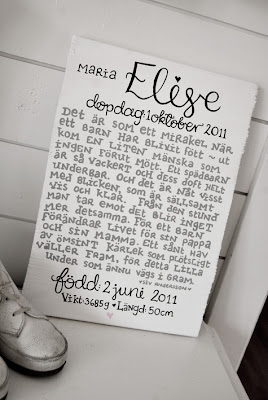 MARIA Elise
dopdag:1oktober 2011
DET ÄR SOM ETT MIRAKEL NÄR
ETT BARN HAR BLIVIT FÖTT ~ UT
KOM EN LITEN MÄNSKA SOM
INGEN FÖRUT MÖTT. ETT SPÄDBARN
ÄR SÅ VACKERT OCH DESS DOFT HELT
UNDERBAR. OCH DET ÄR NÅT VISST
MED BLICKEN, SOM ÄR SÄLLSAMT
VIS OCH KLAR. FRÅN DEN STUND
MAN TAR EMOT DET BLIR INGET
MER DETSAMMA. FÖR ETT BARN
FÖRÄNDRAR LIVET FÖR SIN PAPPA
OCH SIN MAMMA. ETT SÅNT HAV
AV ÖMSINT KÄRLEK SOM PLÖTSLIGT
VÄLLER FRAM, FÖR DETTA LILLA
UNDER SOM ÄNNU VÄGS I GRAM.
•SIV ANDERSSON•
född: 2 juni 2011
Vikt:3685g ♥ Längd: 50cm